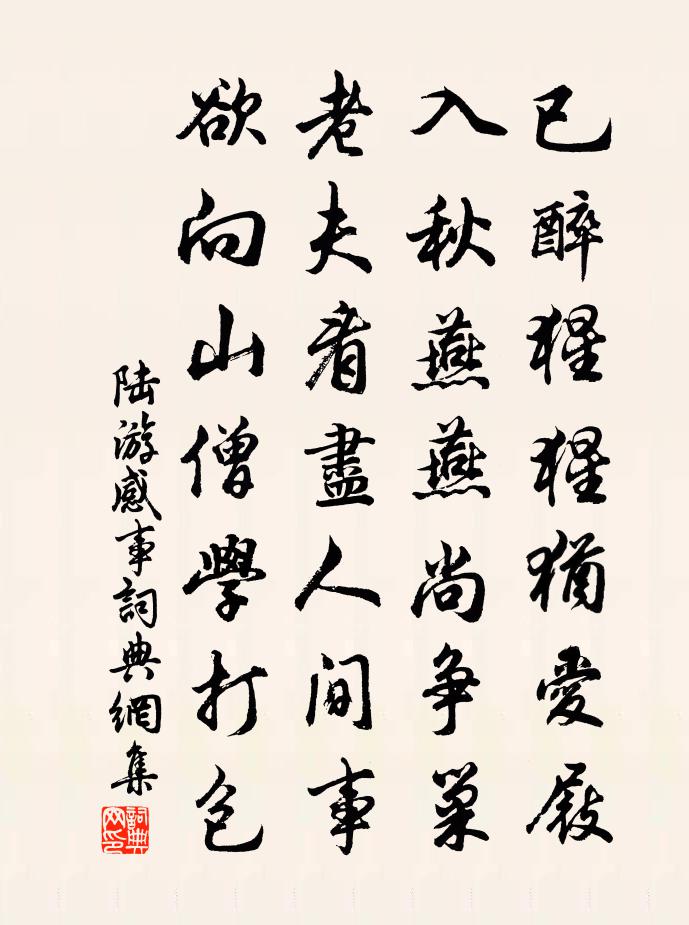 已醉猩猩猶愛屐
入秋燕燕尚爭巢
老夫看盡人間事
欲向山僧學打包
陆游感事詞典網集
詞典
网印